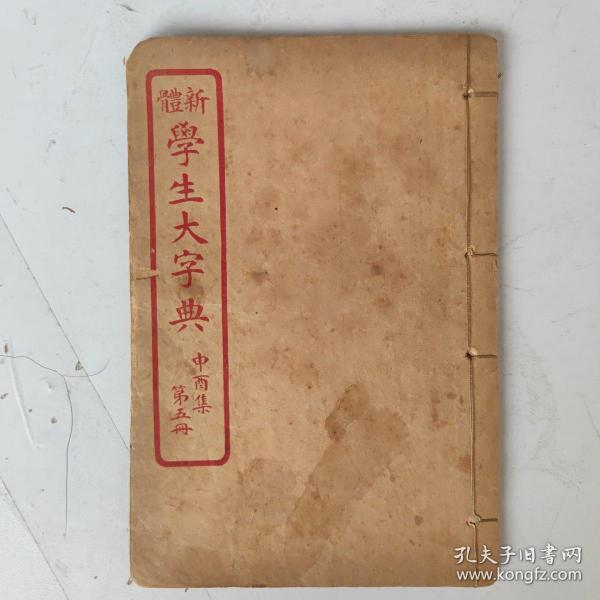 新體
學生大字典
申酉集
第五冊
孔夫子旧书网
www.kongfz.com